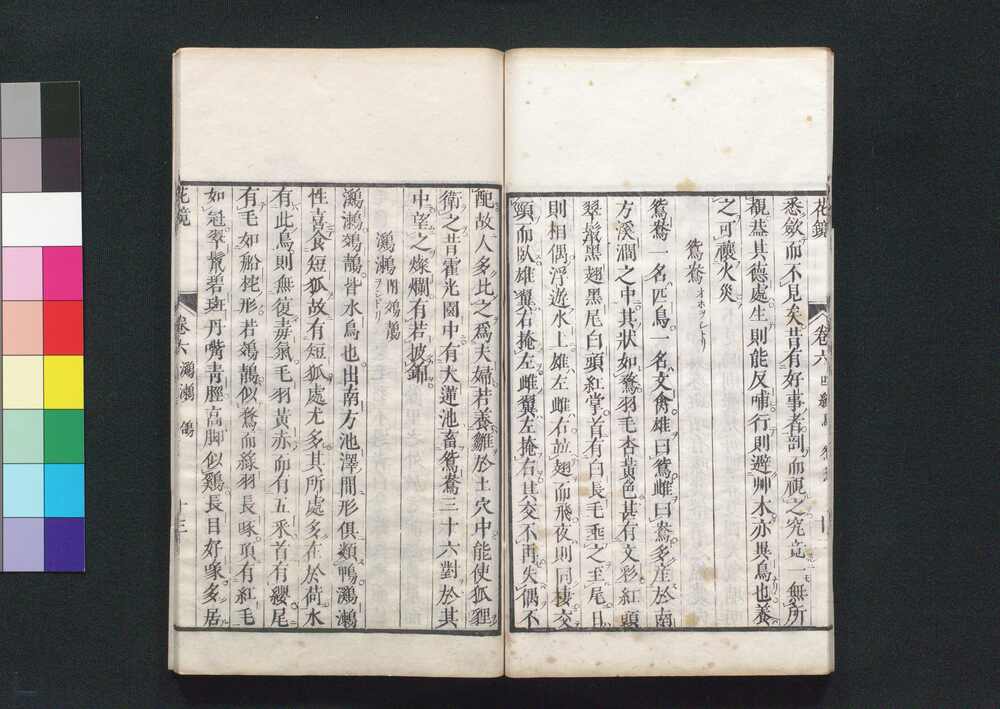 花鏡
卷六
悉歛而不見矣昔有好事者剖而視之究竟一無所
觀葢其德處生則能反哺行則避艸木亦異鳥也養
之可禳火災
鴛鴦 オホヲシドリ
鴛鴦一名匹鳥一名文禽雄曰鴛雌曰鴦多産於南
方溪澗之中其狀如鶩羽毛杏黃色甚有文彩紅頭
翠鬣黑翅黑尾白頭紅掌首有白長毛垂之至尾日
則相偶浮遊水上雄左雌右竝翅而飛夜則同棲交
頸而臥雄翼右掩左雌翼左掩右其交不再失偶不
配故人多比之爲夫婦若養雛於土穴中能使狐狸
衛之昔霍光園中有大蓮池畜鴛鴦三十六對於其
中望之燦爛有若披錦
鸂鶒 附鵁鶄 ヲシドリ
鸂鶒鵁鶄皆水鳥也出南方池澤間形俱類鴨鸂鶒
性喜食短狐故有短狐處尤多其所處多在於荷水
有此鳥則無復毒氣毛羽黃赤而有五釆首有纓尾
有毛如船柁形若鵁鶄似鶩而綠羽長啄項有紅毛
如冠翠鬣碧斑丹嘴青脛高脚似鷄長目好啄多居
花鏡
卷六 鸂鶒 鴿 十三